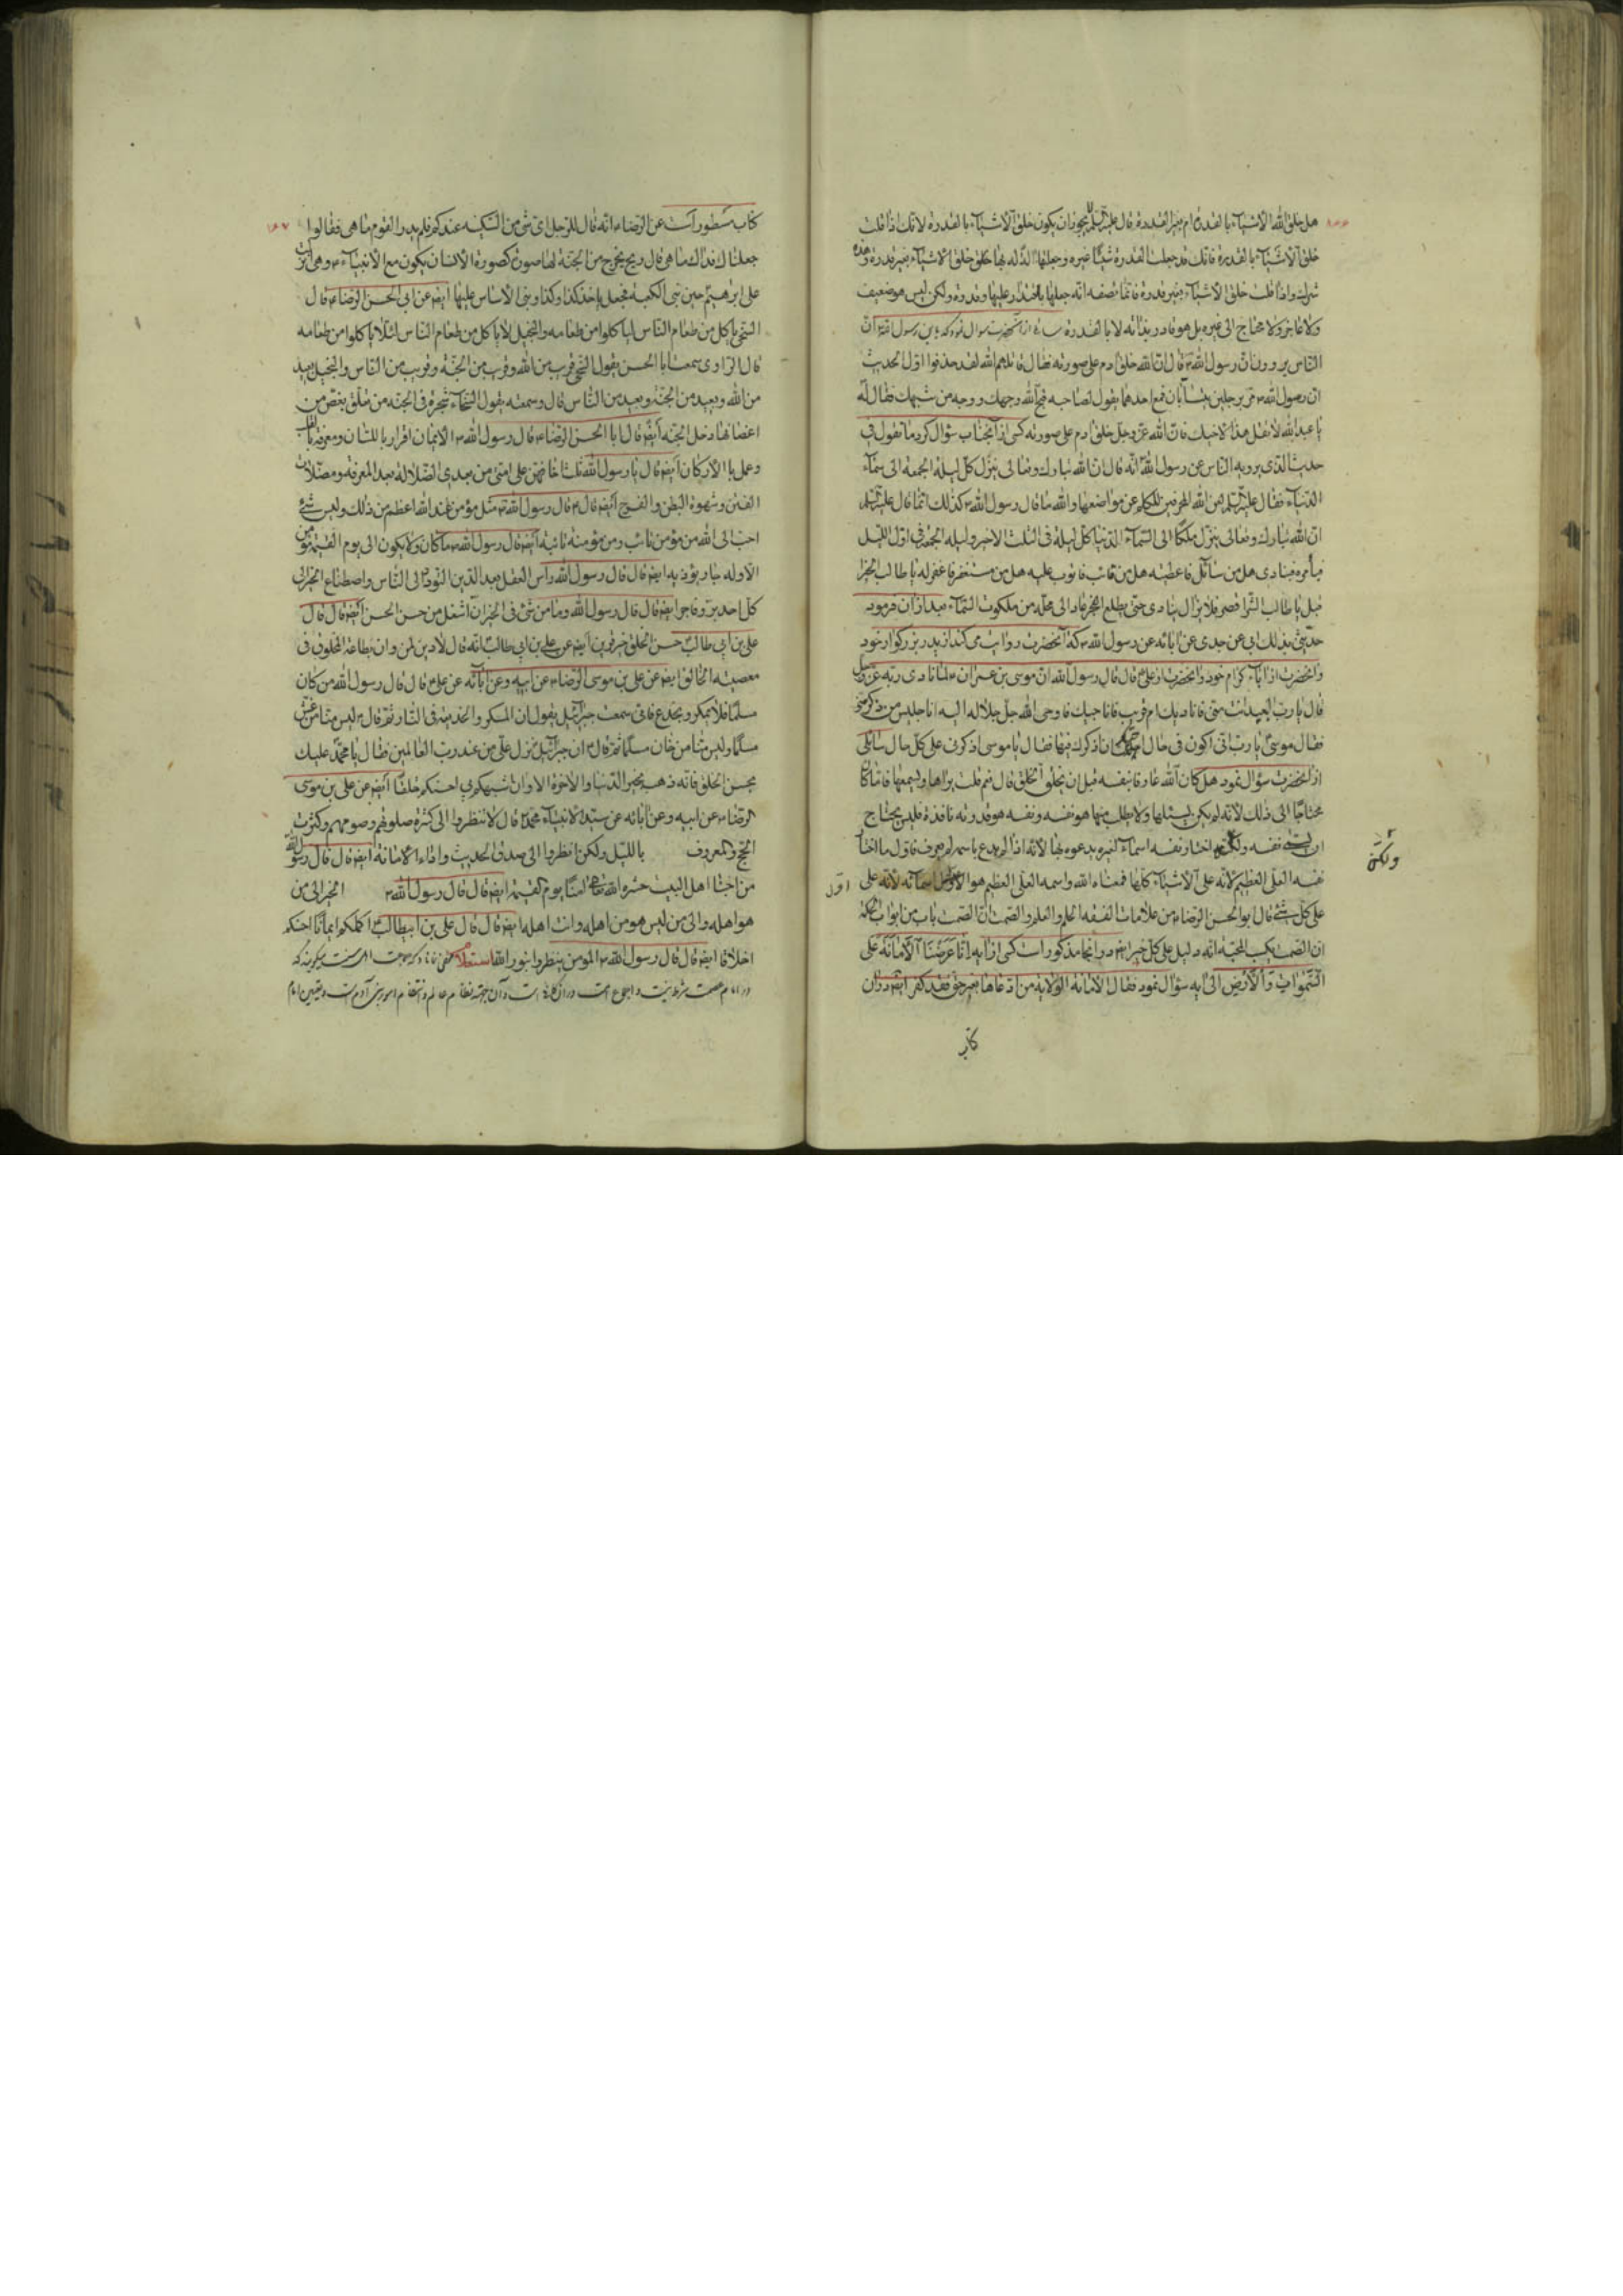 هل خلق الله الاشیاء بالقدرة ام بغیر القدرة قال علیه السلم لا یجوز ان یکون خلق الاشیاء بالقدرة لانک اذا قلت
خلق الاشیاء بالقدرة فانک قد جعلت القدرة شیئا غیره و جعلتها آلة له بها خلق خلق الاشیاء بغیر قدرة وهذه
شرک و اذا قلت خلق الاشیاء بغیر قدرة فانما تصفه انه جعلها باقتدار علیها و قدرة ولکن لیس هو ضعیف
ولا عاجز ولا محتاج الی غیره بل هو قادر بذاته لا بالقدرة از آنحضرت سوال نمود که یابن رسول الله ان
الناس یروون ان رسول الله ص قال ان الله خلق ادم علی صورته فقال قاتلهم الله لقد حذفوا اول الحدیث
ان رسول الله ص مر برجلین یتسابان فسمع احدهما یقول لصاحبه قبح الله وجهک و وجه من شبهک فقال له
یا عبد الله لا تقل هذا لاخیک فان الله عز وجل خلق ادم علی صورته کسی از آنجناب سؤال کرد ما تقول فی
حدیث الذی یرویه الناس عن رسول الله انه قال ان الله تبارک وتعالی ینزل کل لیلة الجمعة الی سماء
الدنیا فقال علیه السلم لعن الله المحرفین للکلم عن مواضعها والله ما قال رسول الله ص کذلک انما قال علیه السلم
ان الله تبارک وتعالی ینزل ملکا الی السماء الدنیا کل لیلة فی الثلث الاخیر ولیلة الجمعة فی اول اللیل
فیأمره فینادی هل من سائل فاعطیه هل من تائب فاتوب علیه هل من مستغفر فاغفر له یا طالب الخیر
اقبل یا طالب الشر اقصر فلا یزال ینادی حتی یطلع الفجر عاد الی محله من ملکوت السماء بعد از آن فرمود
حدثنی بذلک ابی عن جدی عن ابائه عن رسول الله ص که آنحضرت روایت می کند از پدر بزرگوار خود
و آنحضرت از اباء کرام خود و آنحضرت از علی ع قال قال رسول الله ان موسی بن عمران ع لما نادی ربه عز وجل
قال یا رب ابعید انت منی فانادیک ام قریب فاناجیک فاوحی الله جل جلاله الیه انا جلیس من ذکرنی
فقال موسی یا رب انی اکون فی حال اجلک ان اذکرک فیها فقال یا موسی اذکرنی علی کل حال سائلی
از آنحضرت سؤال نمود هل کان الله عارفا بنفسه قبل ان یخلق الخلق قال نعم قلت یراها و یسمعها قال ما کان
محتاجا الی ذلک لانه لم یکن یسئلها ولا یطلب منها هو نفسه و نفسه هو قدرته نافذة فلیس یحتاج
ان یسمی نفسه ولکنه اختار نفسه اسماء لغیره یدعوه بها لانه اذا لم یدع باسمه لم یعرف فاول ما اختار
ولکن
نفسه العلی العظیم لانه علی الاشیاء کلها فمعناه الله واسمه العلی العظیم هو اول اسمائه لانه علی
اول
علی کل شئ قال ابو الحسن الرضا ع من علامات الفقه الحلم والعلم والصمت ان الصمت باب من ابواب الحکمة
ان الصمت یکسب المحبة انه دلیل علی کل خیر ایضا در آنجا مذکور است کسی از آیه انا عرضنا الامانة علی
السموات والارض الی ایه سؤال نمود فقال الامانة الولایة من ادعاها بغیر حق فقد کفر ایضا در ان
کتاب
کتاب مسطور است عن الرضا ع انه قال للرجل ای شئ من السکینة عندکم فلم یدر القوم ما هی فقالوا
جعلنا لک فداک ما هی قال ریح یخرج من الجنة لها صورة کصورة الانسان یکون مع الانبیاء ع وهی انزلت
علی ابرهیم حین بنی الکعبة فجعل یاخذ کذا وکذا و بنی الاساس علیها ایضا عن ابی الحسن الرضا ع قال
السخی یاکل من طعام الناس لیاکلوا من طعامه والبخیل لا یاکل من طعام الناس لئلا یاکلوا من طعامه
قال الراوی سمعت ابا الحسن یقول السخی قریب من الله وقریب من الجنة وقریب من الناس والبخیل بعید
من الله وبعید من الجنة وبعید من الناس قال وسمعته یقول السخاء شجرة فی الجنة من تعلق بغصن من
اعصانها دخل الجنة ایضا قال ابا الحسن الرضا ع قال رسول الله ص الایمان اقرار باللسان ومعرفة بالقلب
وعمل بالارکان ایضا قال یا رسول الله ثلث اخافهن علی امتی من بعدی الضلالة بعد المعرفة ومضلات
الفتن وشهوة البطن والفرج ایضا قال ع قال رسول الله ص مثل مؤمن عند الله اعظم من ذلک ولیس شئ
احب الی الله من مؤمن تائب ومن مؤمنة تائبة ایضا قال رسول الله ص ما کان ولا یکون الی یوم القیمة مؤمن
الا وله جار یؤذیه ایضا قال قال رسول الله راس العقل بعد الدین التودد الی الناس واصطناع الخیر الی
کل احد بر وفاجر ایضا قال قال رسول الله وما من شئ فی المیزان اثقل من حسن الحسن ایضا قال قال
علی بن ابی طالب حسن الخلق خیر قرین ایضا عن علی بن ابی طالب انه قال لا دین لمن وان بطاعة المخلوق فی
معصیة الخالق ایضا عن علی بن موسی الرضا ع عن ابیه وعن ابائه عن علی ع قال قال رسول الله من کان
مسلما فلا یمکر و یخدع فانی سمعت جبرئیل یقول ان المکر والخدیعة فی النار ثم قال ص لیس منا من غش
مسلما ولیس منا من خان مسلما ثم قال ص ان جبرئیل نزل علی من عند رب العالمین فقال یا محمد علیک
بحسن الخلق فانه ذهب بخیر الدنیا والاخرة الا وان اشبهکم بی احسنکم خلقا ایضا عن علی بن موسی
الرضا ع عن ابیه وعن ابائه عن سید الانبیاء محمد ص قال لا تنظروا الی کثرة صلوتهم وصومهم وکثرت
الحج والمعروف باللیل ولکن انظروا الی صدق الحدیث واداء الامانة ایضا قال قال رسول الله
من احبنا اهل البیت حشره الله تعالی امنا یوم القیمة ایضا قال قال رسول الله ص الخیر الی من
هو اهله والی من لیس هو من اهله وانت اهله ایضا قال قال علی بن ابیطالب اکملکم ایمانا احسنکم
اخلاقا ایضا قال قال رسول الله ص المومن ینظر بنور الله